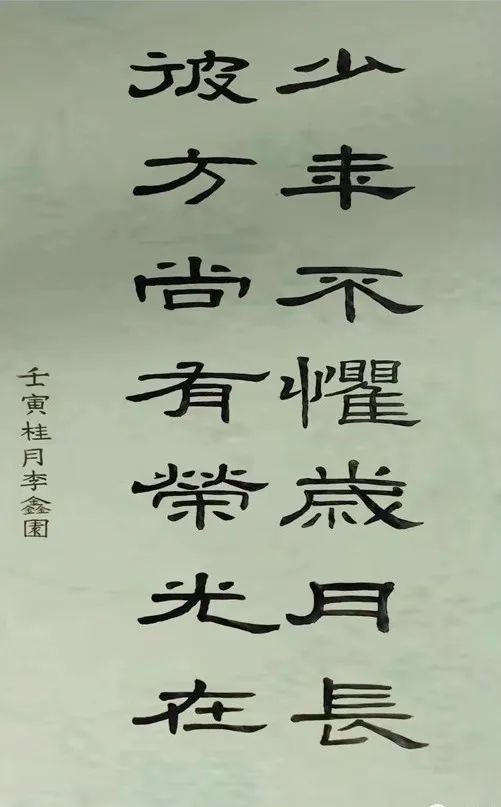 少年不懼歲月長
彼方尚有榮光在
壬寅桂月李鑫園